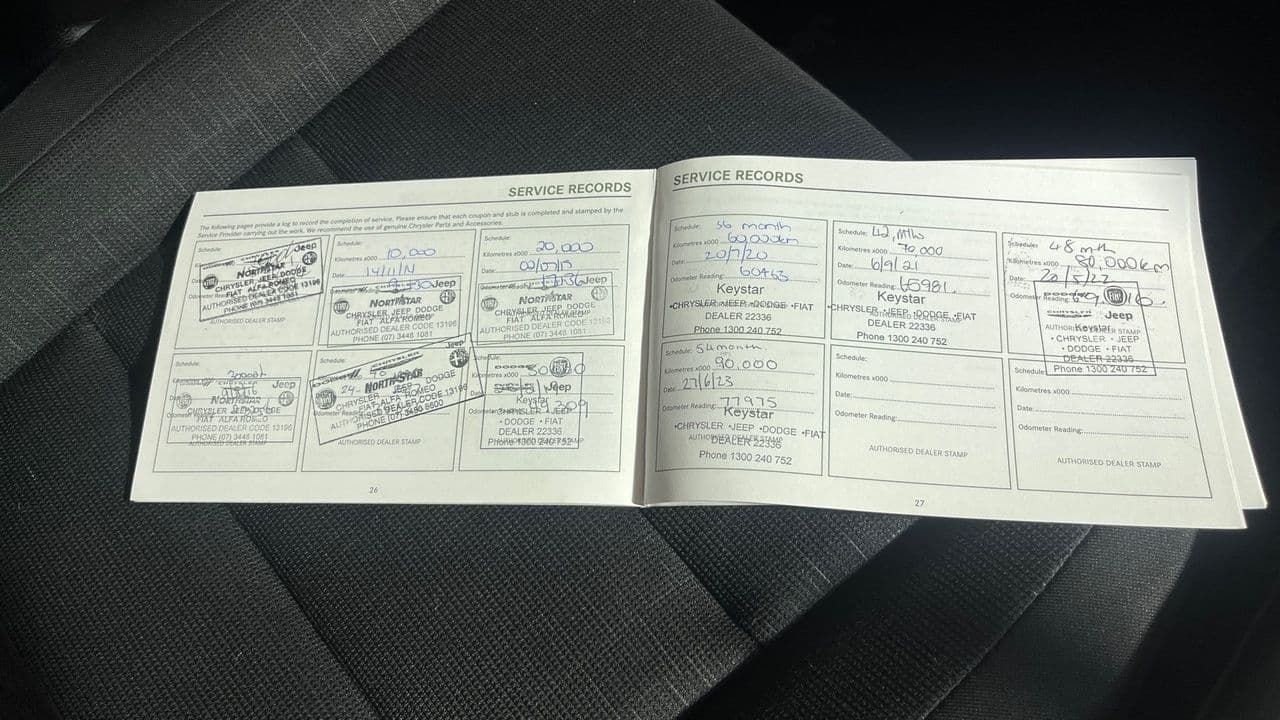 SERVICE RECORDS
The following pages provide a log to record the completion of service. Please ensure that each coupon and stub is completed and stamped by the
Service Provider carrying out the work. We recommend the use of genuine Chrysler Parts and Accessories.
Schedule:
Jeep
NORTHSTAR
CHRYSLER JEEP DODGE
FIAT ALFA ROMEO
AUTHORISED DEALER CODE 13196
PHONE (07) 3448 1081
AUTHORISED DEALER STAMP
Schedule:
Kilometres x000 10,000
Date:
Jeep
NORTHSTAR
CHRYSLER JEEP DODGE
FIAT ALFA ROMEO
AUTHORISED DEALER CODE 13196
PHONE (07) 3448 1081
Schedule:
Kilometres x000 20,000
Date:
Jeep
NORTHSTAR
CHRYSLER JEEP DODGE
FIAT ALFA ROMEO
AUTHORISED DEALER CODE 13196
PHONE (07) 3448 1081
Schedule:
Jeep
NORTHSTAR
CHRYSLER JEEP DODGE
FIAT ALFA ROMEO
AUTHORISED DEALER CODE 13196
PHONE (07) 3448 1081
AUTHORISED DEALER STAMP
Schedule:
CHRYSLER
NORTHSTAR
CHRYSLER JEEP DODGE
FIAT ALFA ROMEO
AUTHORISED DEALER CODE 13196
AUTHORISED DEALER STAMP
Schedule:
Jeep
Keystar
CHRYSLER • JEEP
• DODGE • FIAT
DEALER 22336
Phone 1300 240 752
26
SERVICE RECORDS
Schedule: 36 month
Kilometres x000 60,000km
Date: 20/7/20
Odometer Reading: 60463
Keystar
•CHRYSLER •JEEP •DODGE •FIAT
DEALER 22336
Phone 1300 240 752
Schedule: 42 Mth
Kilometres x000 70,000
Date: 6/9/21
Odometer Reading: 65981
Keystar
•CHRYSLER •JEEP •DODGE •FIAT
DEALER 22336
Phone 1300 240 752
Schedule: 48 mth
Kilometres x000 80,000km
Date: 20/5/22
Odometer Reading:
Jeep
AUTHORISED DEALER STAMP
Keystar
• CHRYSLER • JEEP
• DODGE • FIAT
DEALER 22336
Phone 1300 240 752
Schedule: 54 month
Kilometres x000 90,000
Date: 27/6/23
Odometer Reading: 77975
Keystar
•CHRYSLER •JEEP •DODGE •FIAT
AUTHORISED DEALER STAMP
DEALER 22336
Phone 1300 240 752
Schedule:
Kilometres x000
Date:
Odometer Reading:
AUTHORISED DEALER STAMP
Schedule:
Kilometres x000
Date:
Odometer Reading:
AUTHORISED DEALER STAMP
27